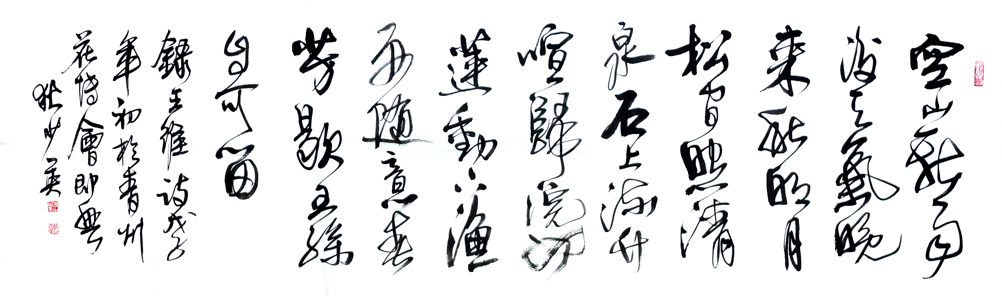 空山新雨
後天氣晚
来秋明月
松间照清
泉石上流竹
喧歸浣女
蓮動下漁
舟随意春
芳歇王孫
自可留
錄王維诗戊子
年初於青州
花博會即興
少英